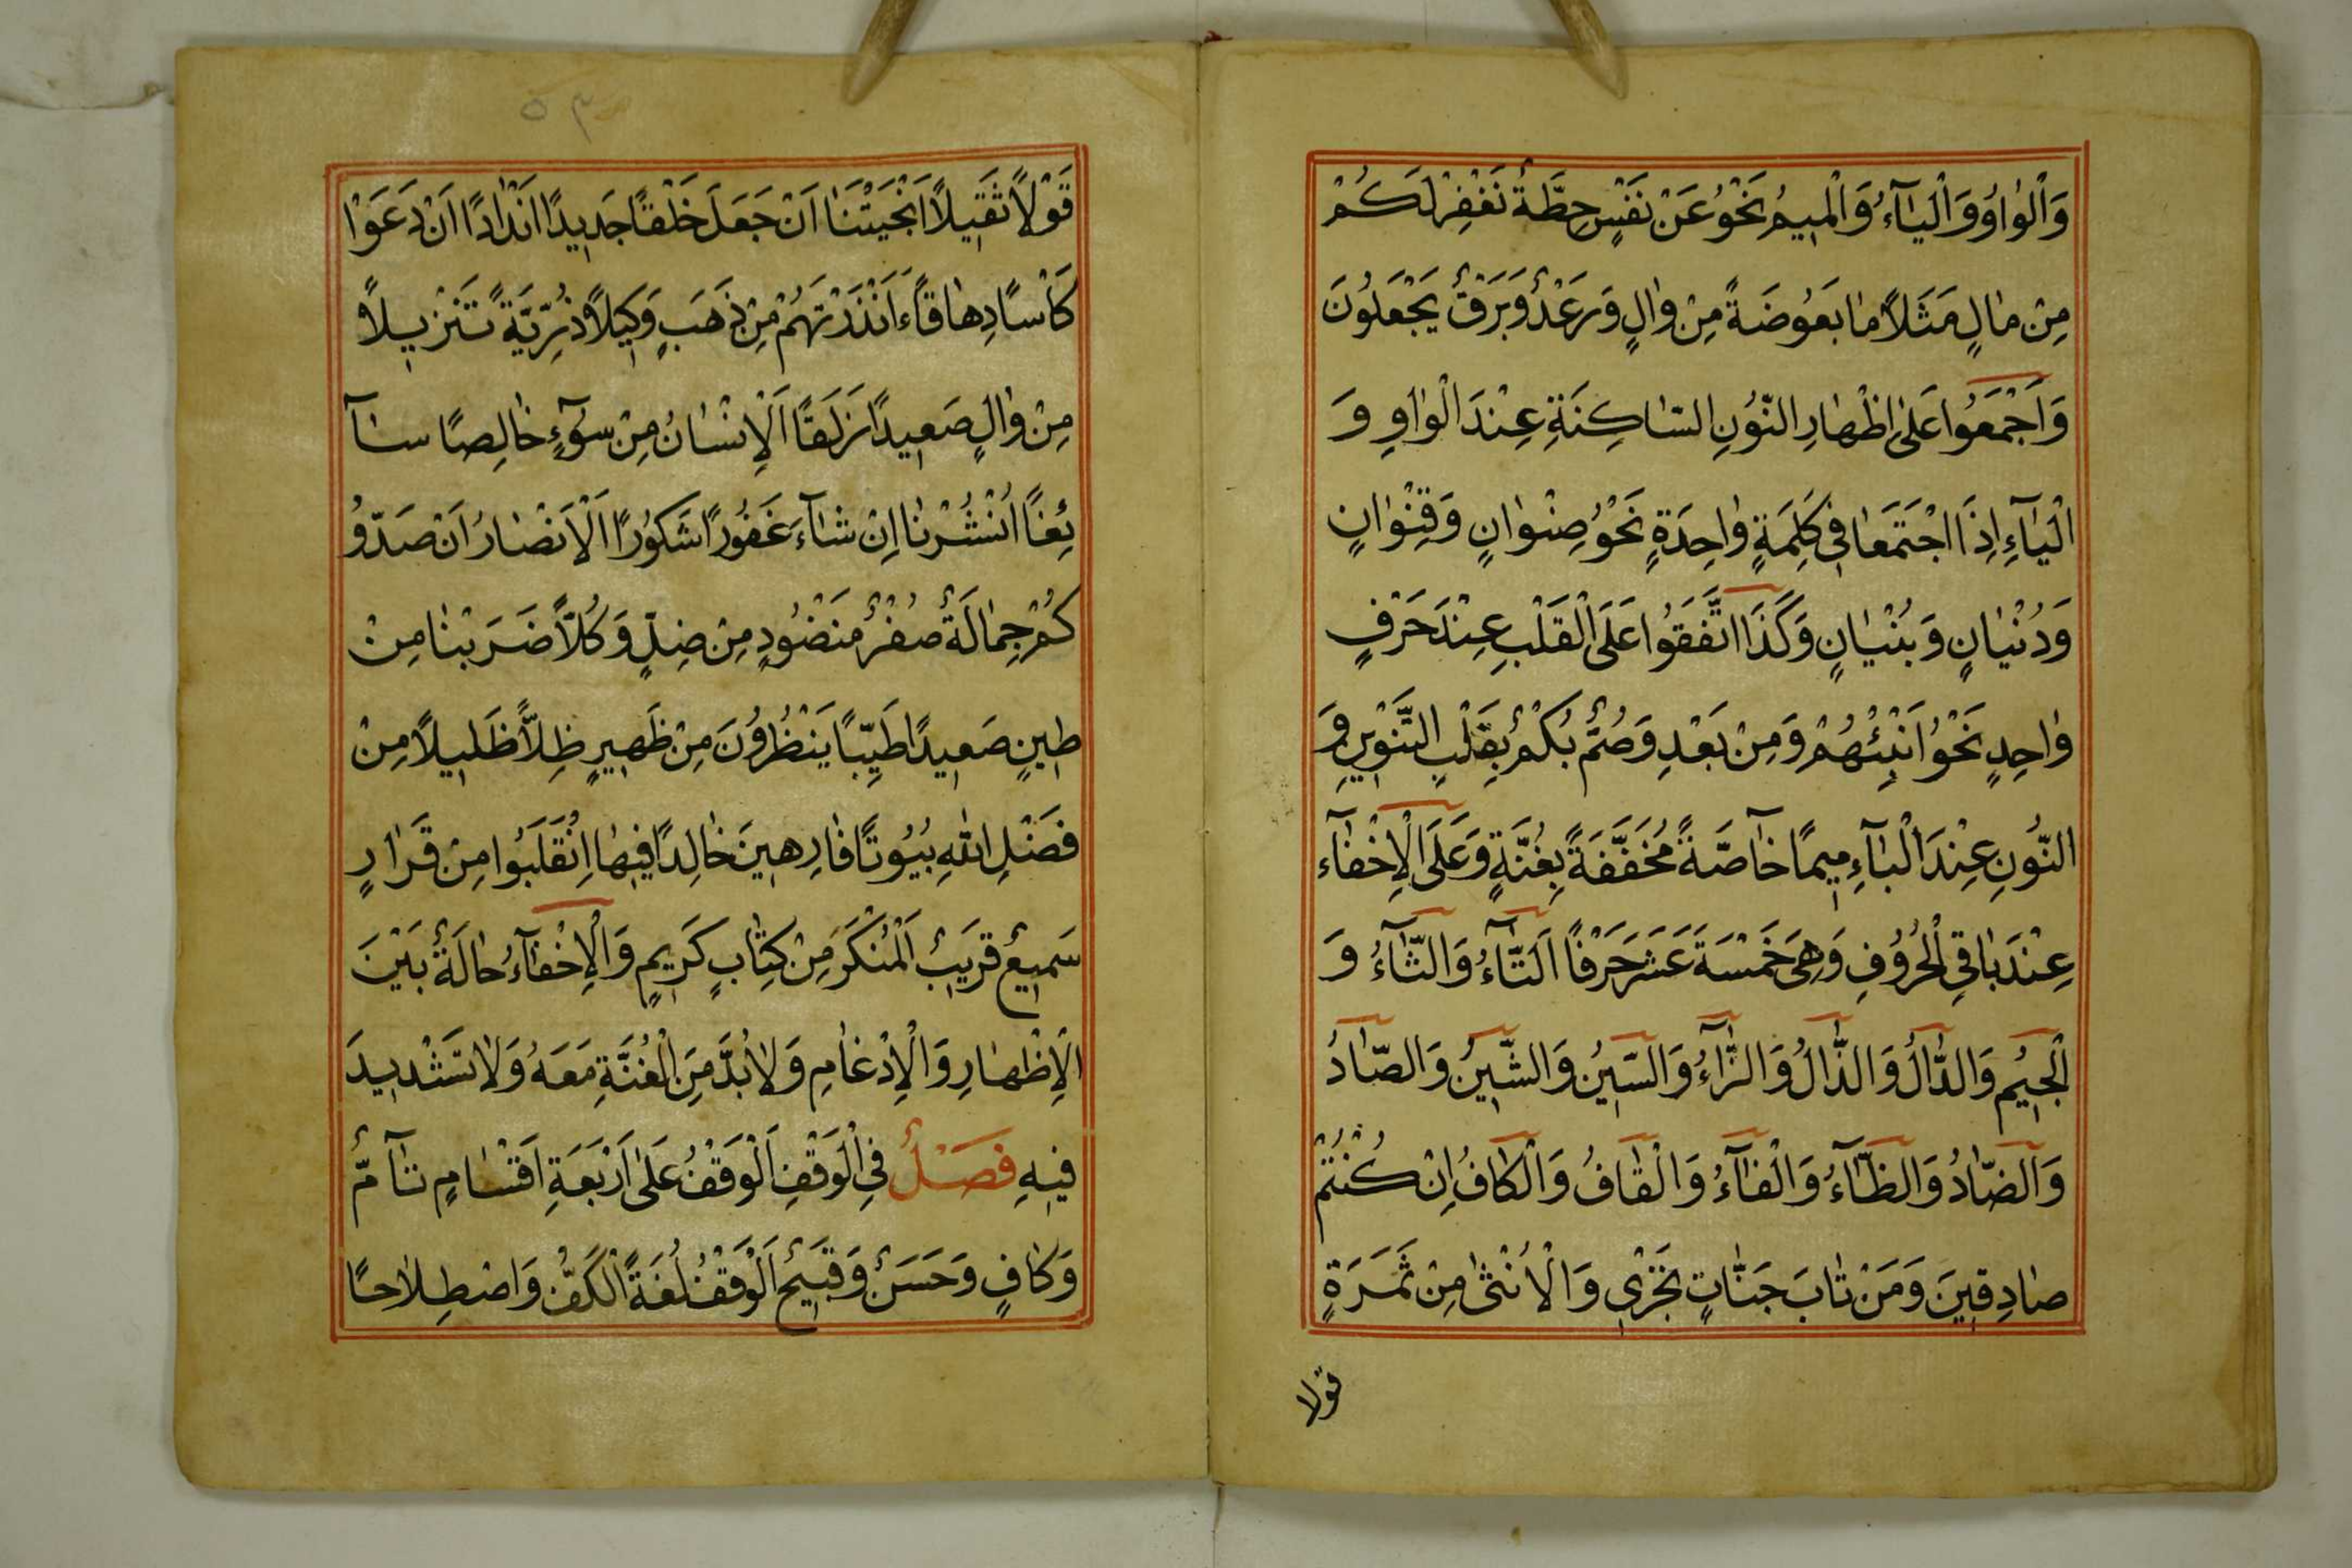 وَالْوٰاوُ وَالْيٰآءُ وَالْمِيمُ نَحْوُ عَنْ نَفْسٍ حِطَّةٌ نَغْفِرْ لَكُمْ
مِنْ مٰالٍ مَثَلًا مٰا بَعُوضَةً مِنْ وٰالٍ وَرَعْدٌ وَبَرْقٌ يَجْعَلُونَ
وَاَجْمَعُوا عَلىٰ اِظْهٰارِ النُّونِ السّٰاكِنَةِ عِنْدَ الْوٰاوِ وَ
الْيٰآءِ اِذَا اجْتَمَعٰا فِي كَلِمَةٍ وٰاحِدَةٍ نَحْوُ صِنْوٰانٍ وَقِنْوٰانٍ
وَدُنْيٰانٍ وَبُنْيٰانٍ وَكَذَا اتَّفَقُوا عَلَى الْقَلْبِ عِنْدَ حَرْفٍ
وٰاحِدٍ نَحْوُ اَنْبِئْهُمْ وَمِنْ بَعْدِ وَصُمٌّ بُكْمٌ بِقَلْبِ التَّنْوِينِ وَ
النُّونِ عِنْدَ الْبٰآءِ مِيمًا خٰآصَّةً مُخَفَّفَةً بِغُنَّةٍ وَعَلَى الْاِخْفٰآءِ
عِنْدَ بٰاقِي الْحُرُوفِ وَهِيَ خَمْسَةَ عَشَرَ حَرْفًا اَلتّٰآءُ وَالثّٰآءُ وَ
الْجِيمُ وَالدّٰالُ وَالذّٰالُ وَالزّٰآءُ وَالسِّينُ وَالشِّينُ وَالصّٰادُ
وَالضّٰادُ وَالظّٰآءُ وَالْفٰآءُ وَالْقٰافُ وَالْكٰافُ اِنْ كُنْتُمْ
صٰادِقِينَ وَمَنْ تٰابَ جَنّٰاتٍ تَجْرِي وَالْاُنْثىٰ مِنْ ثَمَرَةٍ
قولا
قَوْلًا ثَقِيلًا اَنْجَيْتَنٰا اَنْ جَعَلَ خَلْقًا جَدِيدًا اَنْدٰادًا اَنْ دَعَوْا
كَاْسًا دِهٰاقًا ءَاَنْذَرْتَهُمْ مِنْ ذَهَبٍ وَكِيلًا ذُرِّيَّةً تَنْزِيلًا
مِنْ وٰالٍ صَعِيدًا زَلَقًا اَلْاِنْسٰانُ مِنْ سُوٓءٍ خٰالِصًا سٰآ
ئِغًا اُنْشُرْنٰا اِنْ شٰآءَ غَفُورًا شَكُورًا اَلْاَنْصٰارُ اَنْ صَدُّو
كُمْ جِمٰالَةٌ صُفْرٌ مَنْضُودٍ مِنْ ضِلٍّ وَكُلًّا ضَرَبْنٰا مِنْ
طِينٍ صَعِيدًا طَيِّبًا يَنْظُرُونَ مِنْ ظَهِيرٍ ظِلًّا ظَلِيلًا مِنْ
فَضْلِ اللهِ بُيُوتًا فٰارِهِينَ خٰالِدًا فِيهٰا اِنْقَلَبُوا مِنْ قَرٰارٍ
سَمِيعٌ قَرِيبٌ اَلْمُنْكَرَ مِنْ كِتٰابٍ كَرِيمٍ وَالْاِخْفٰآءُ حٰالَةٌ بَيْنَ
الْاِظْهٰارِ وَالْاِدْغٰامِ وَلٰابُدَّ مِنَ الْغُنَّةِ مَعَهُ وَلٰا تَشْدِيدَ
فِيهِ فَصْلٌ فِي الْوَقْفِ اَلْوَقْفُ عَلىٰ اَرْبَعَةِ اَقْسٰامٍ تٰآمٌّ
وَكٰافٍ وَحَسَنٌ وَقَبِيحٌ اَلْوَقْفُ لُغَةً الْكَفُّ وَاصْطِلٰاحًا